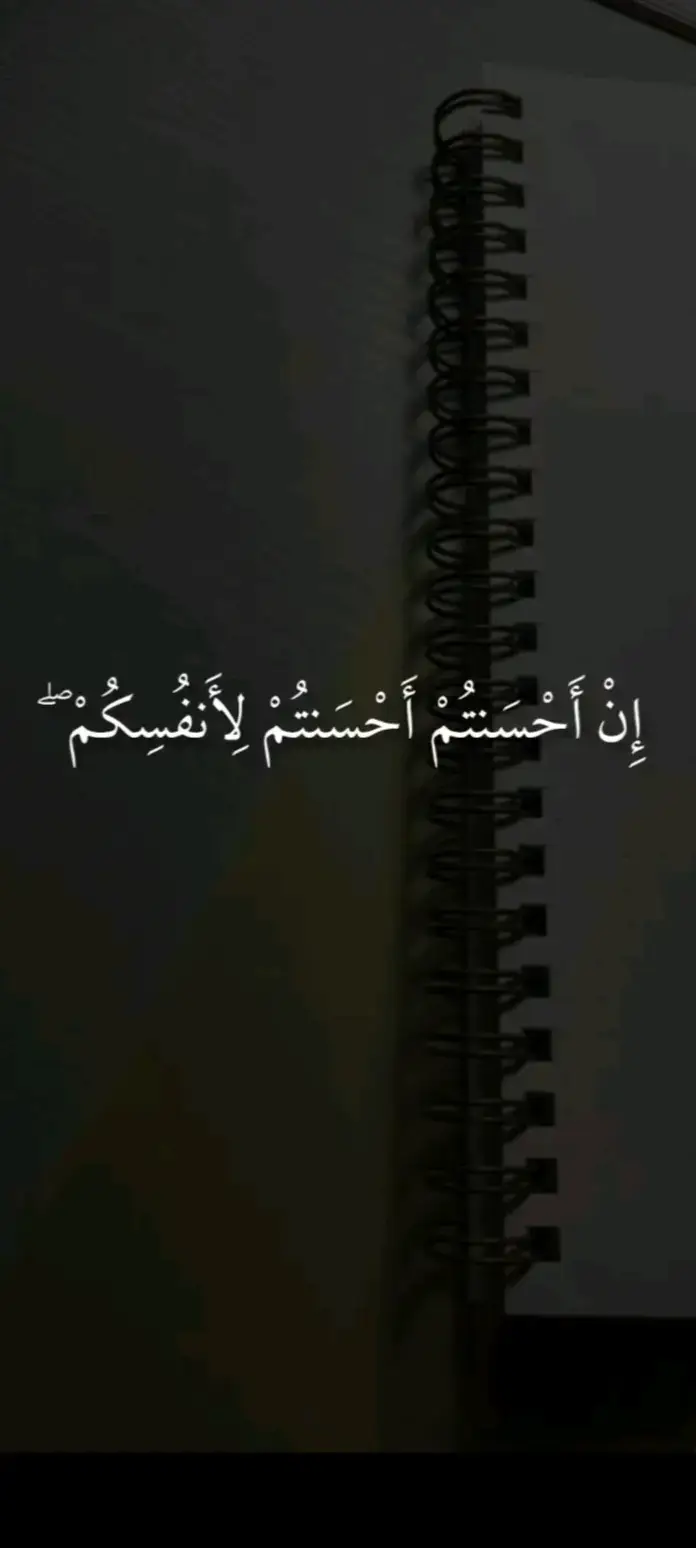 إِنْ أَحْسَنتُمْ أَحْسَنتُمْ لِأَنفُسِكُمْ ۖ